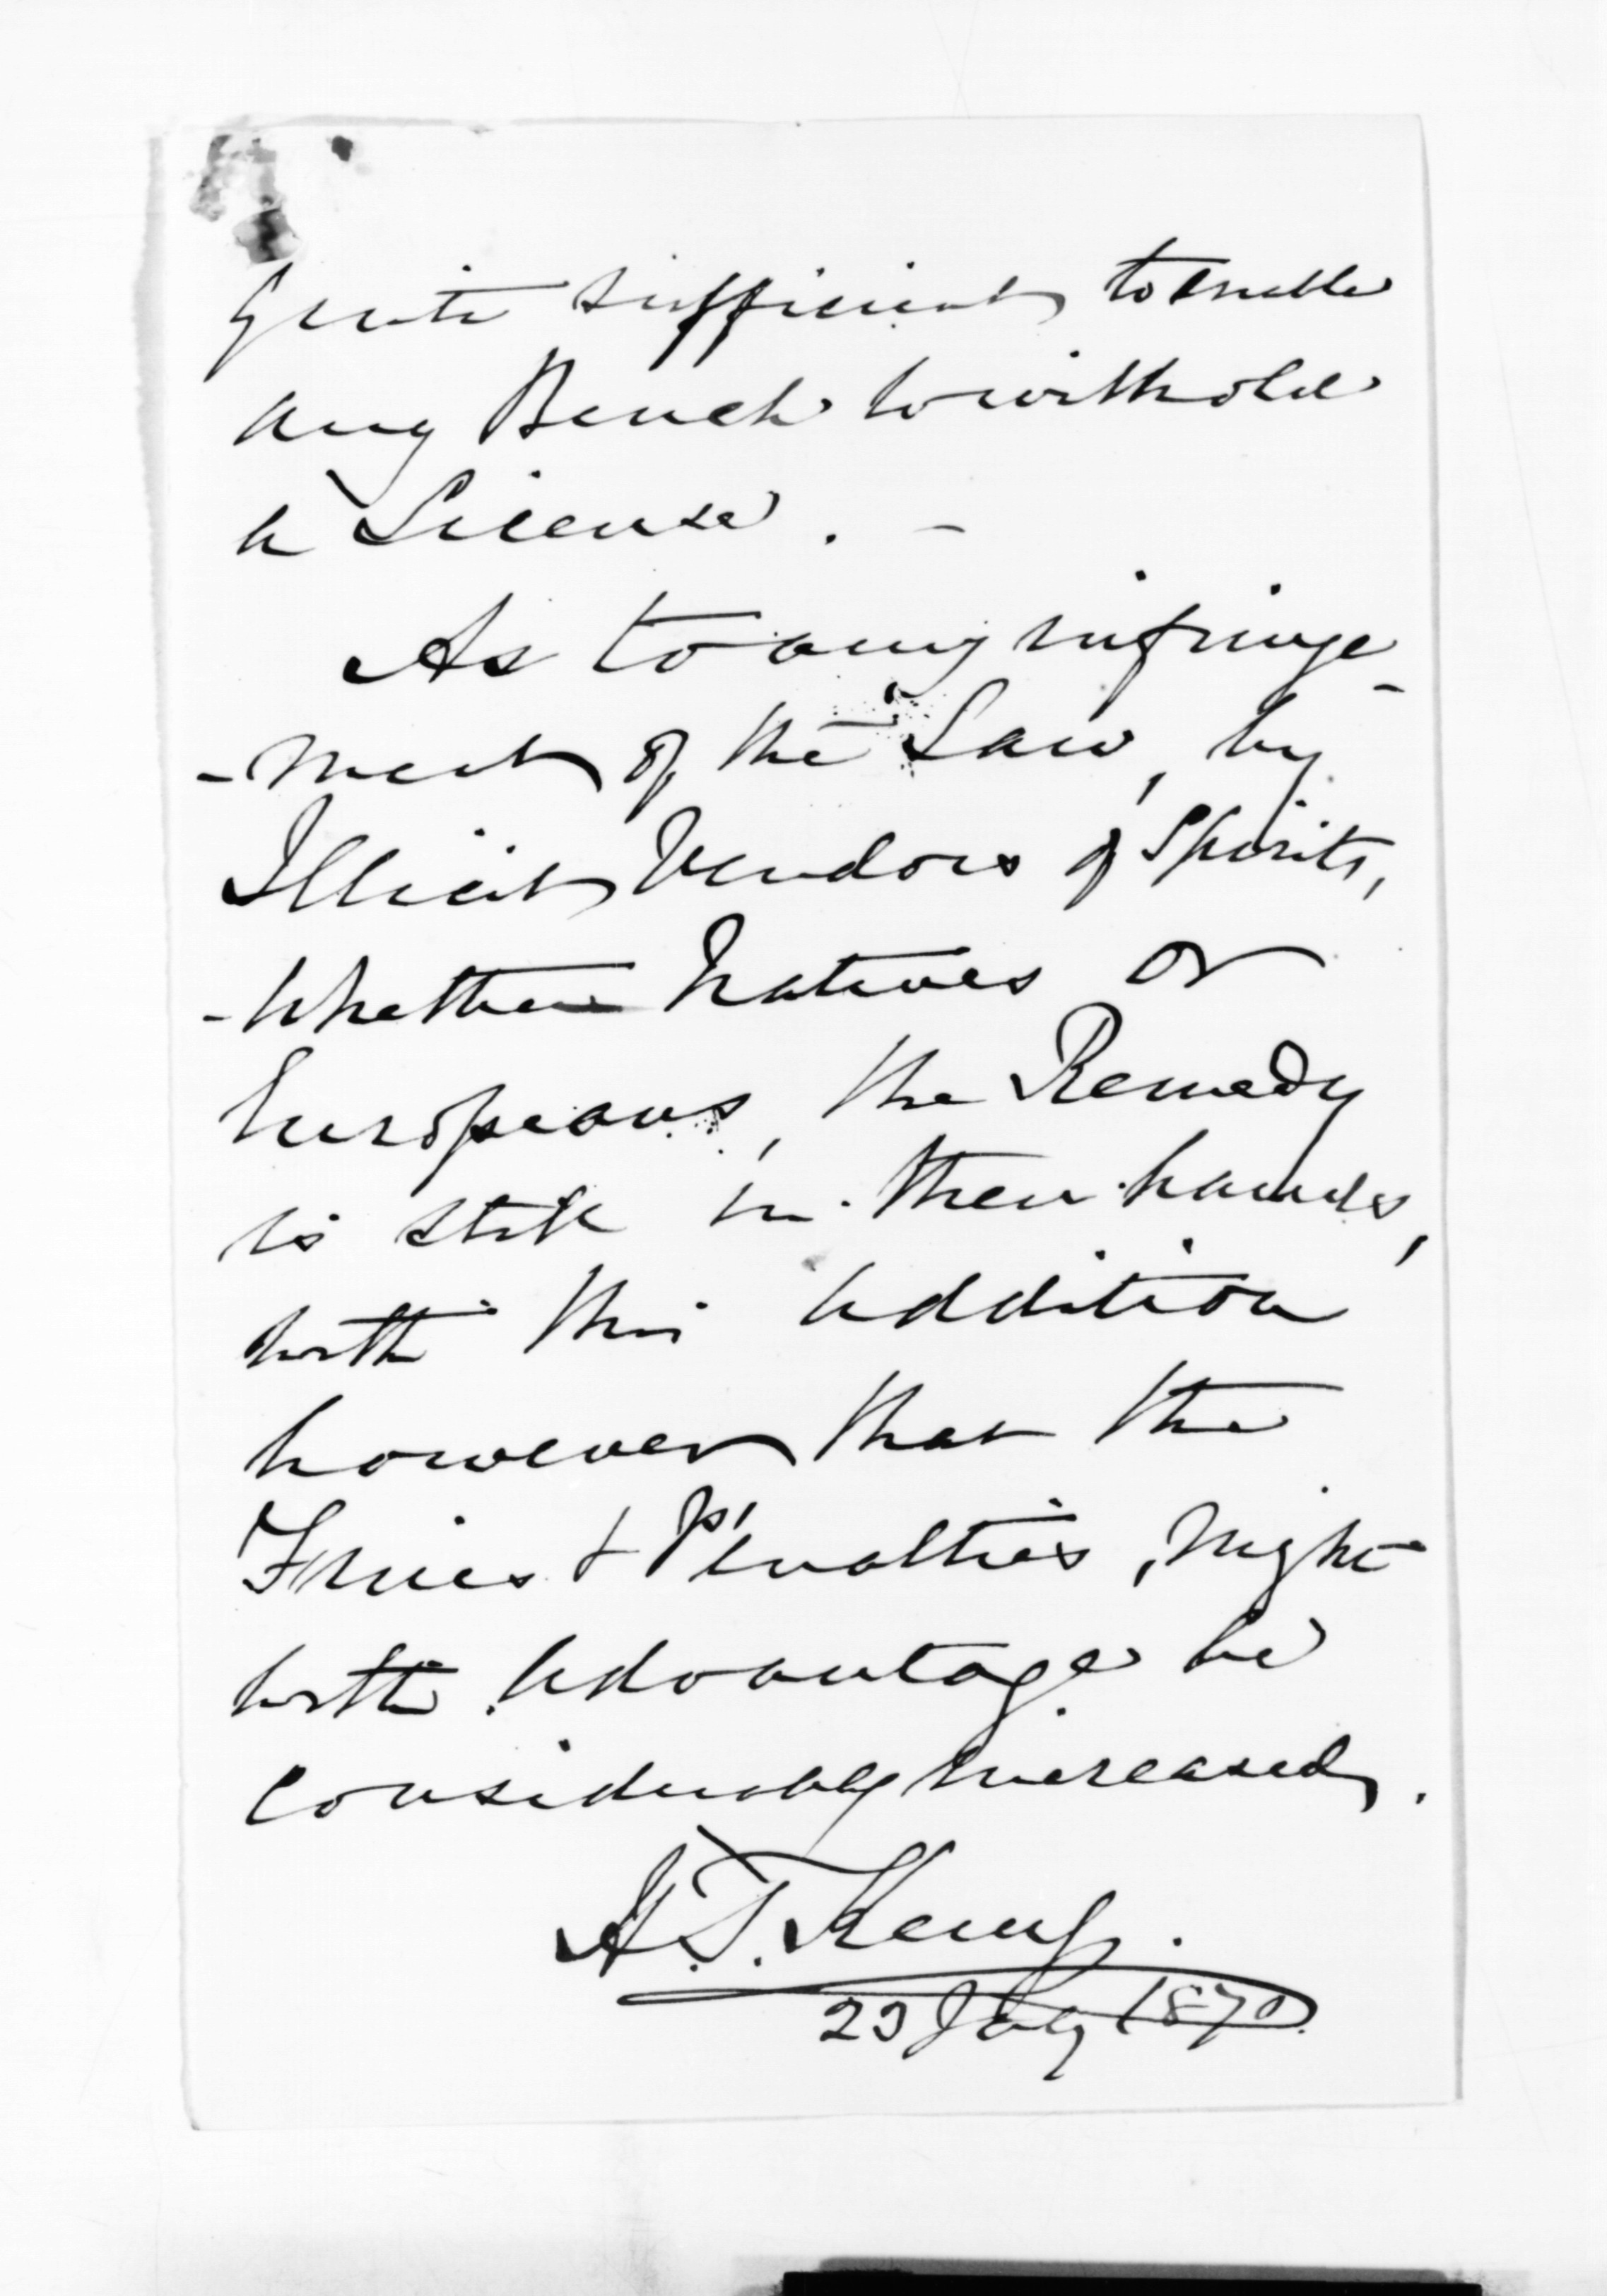 quite sufficient to enable
any Bench to withold
a License. -
As to any infringe-
-ment of the Law, by
Illicit Vendors of Spirits,
-whether Natives or
Europeans, the Remedy
is still in their hands,
with this addition
however that the
Fines & Penalties, might
with advantage be
considerably increased.
H. T. Kemp.
23 July 1870.